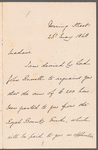 Downing Street
28 May 1868
Madam
I am desired by Lord
John Russell to acquaint you
that the sum of £200 has
been granted to you from the
Royal Bounty Fund, which
will be paid to you on